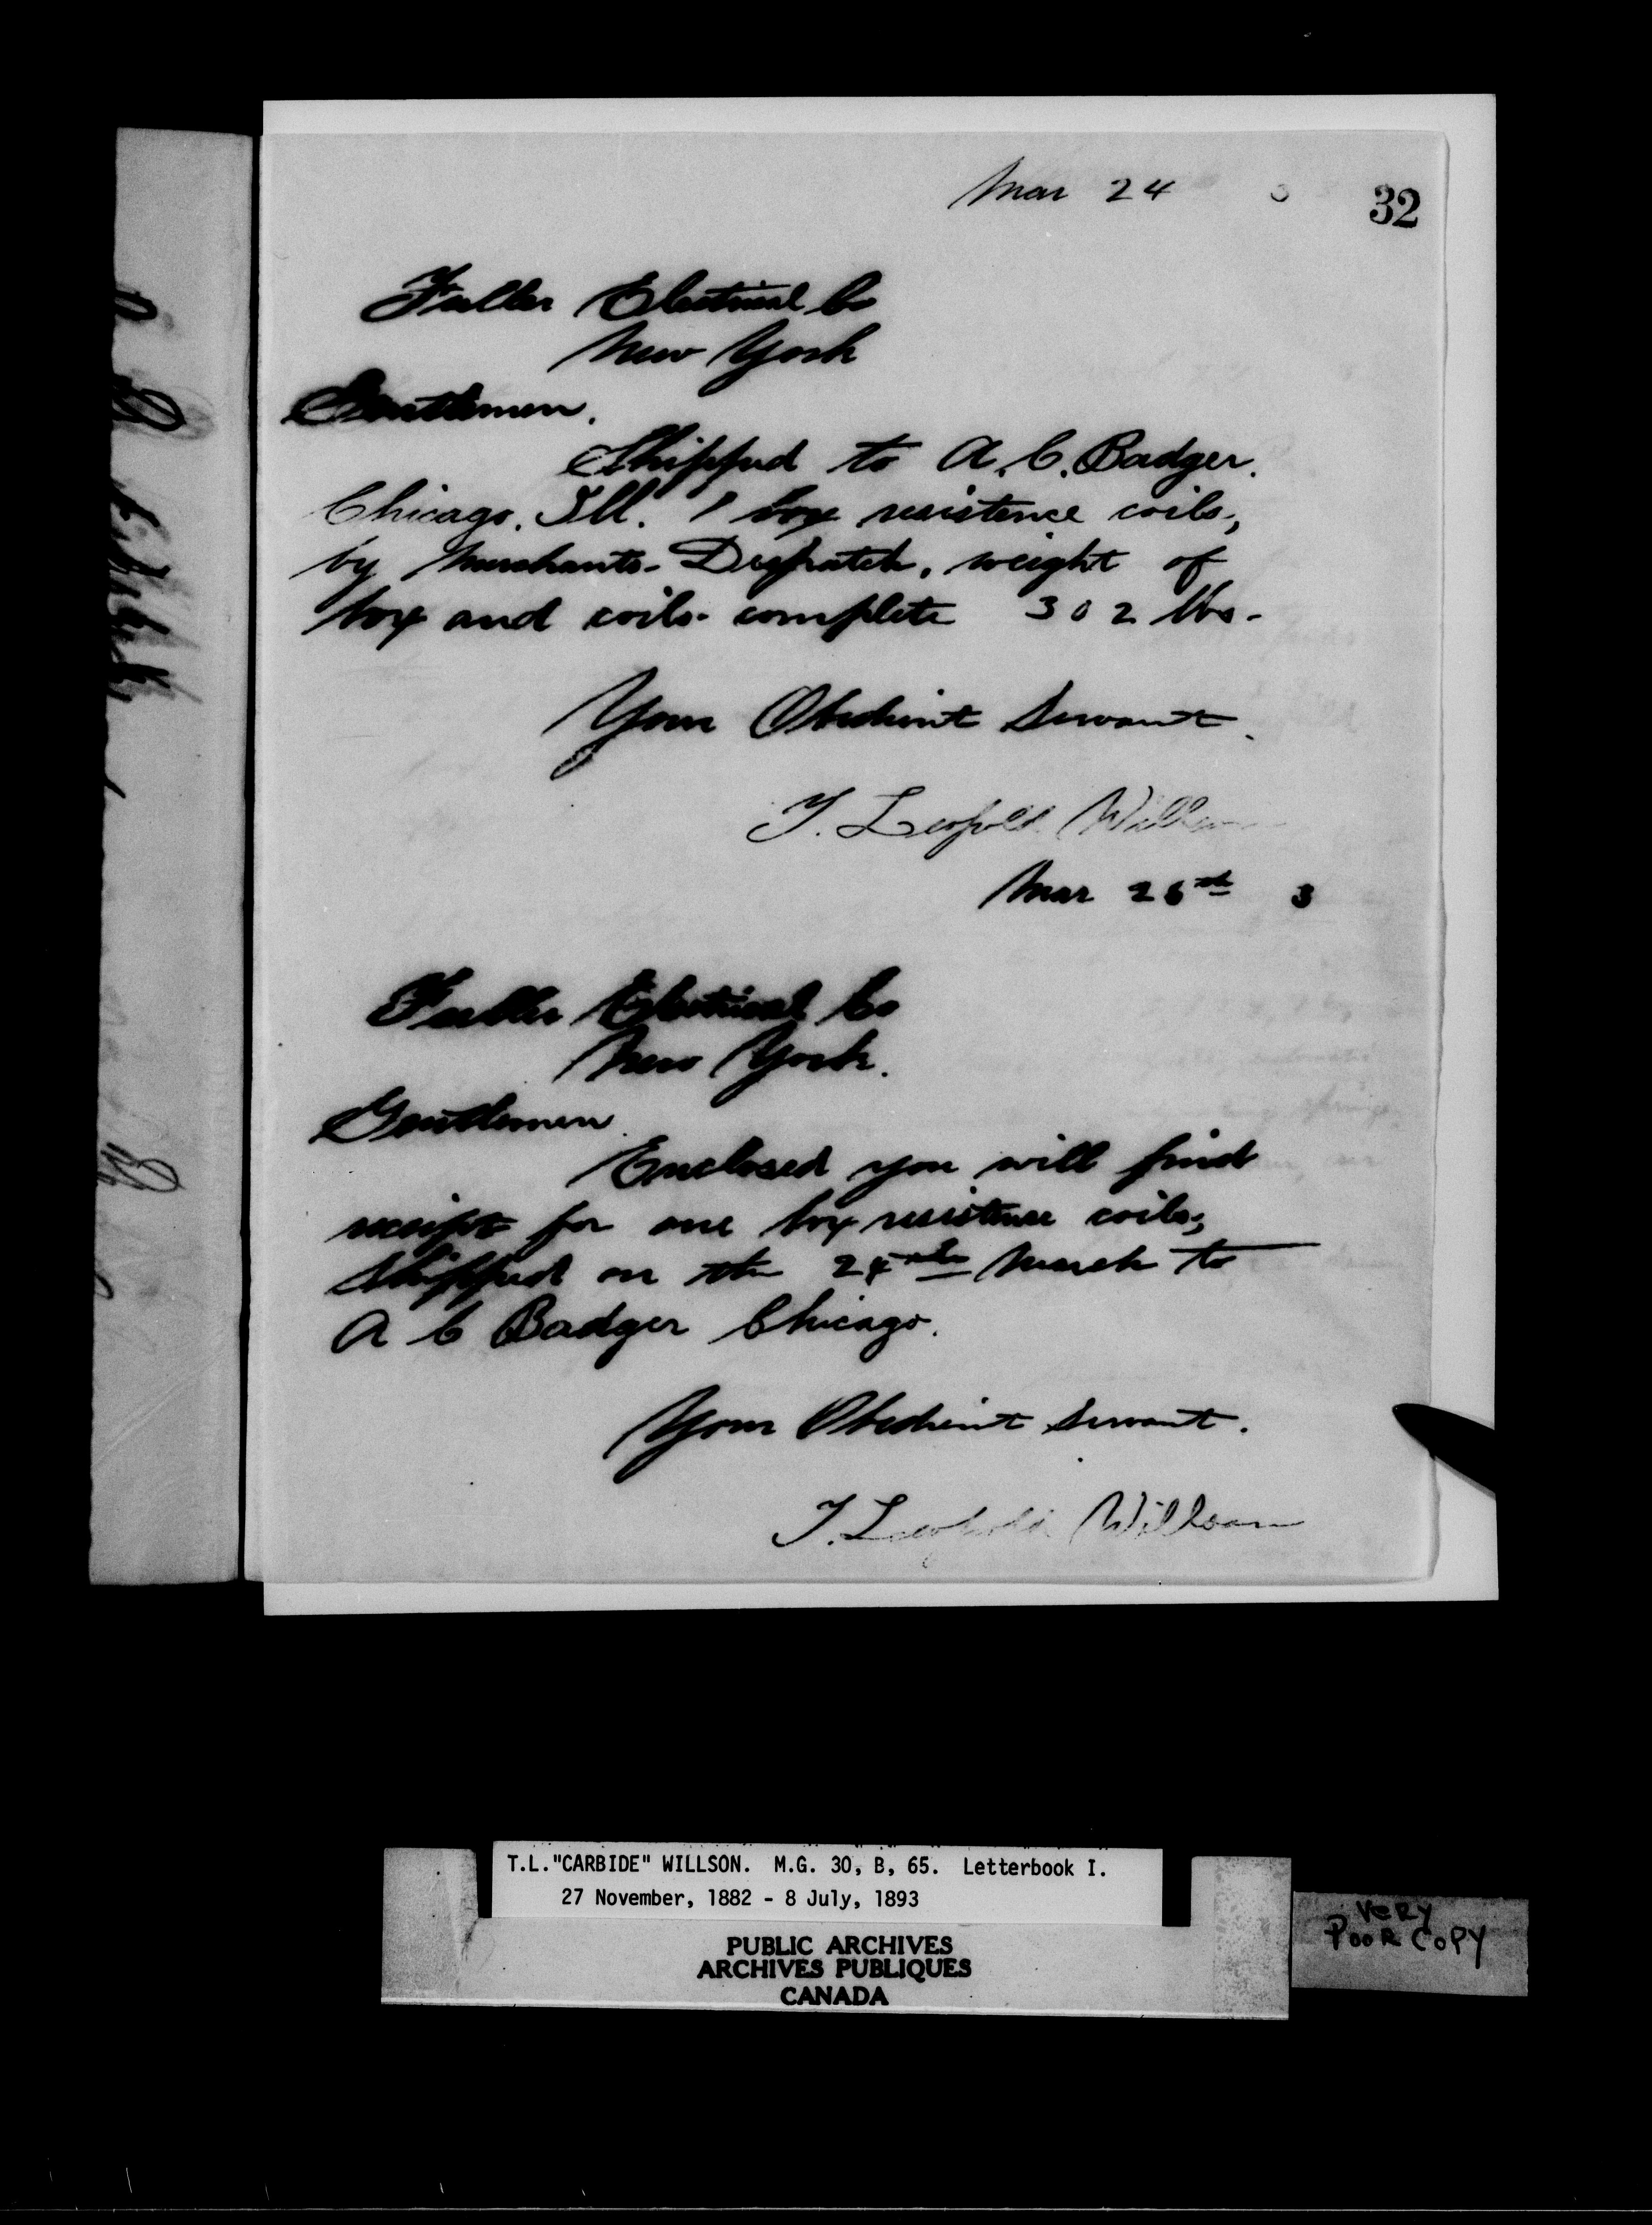 Mar 24 3
32
Fuller Electrical Co
New York
Gentlemen.
Shipped to A. C. Badger.
Chicago. Ill. 1 box resistence coils,
by Merchants Despatch, weight of
box and coils complete 302 lbs.
Your Obedient Servant.
T. Leopold Willson
Mar 26th 3
Fuller Electrical Co
New York.
Gentlemen.
Enclosed you will find
receipt for one box resistence coils,
shipped on the 24th March to
A C Badger Chicago.
Your Obedient Servant.
T. Leopold Willson
T.L."CARBIDE" WILLSON. M.G. 30, B, 65. Letterbook I.
27 November, 1882 - 8 July, 1893
PUBLIC ARCHIVES
ARCHIVES PUBLIQUES
CANADA
VERY
POOR COPY